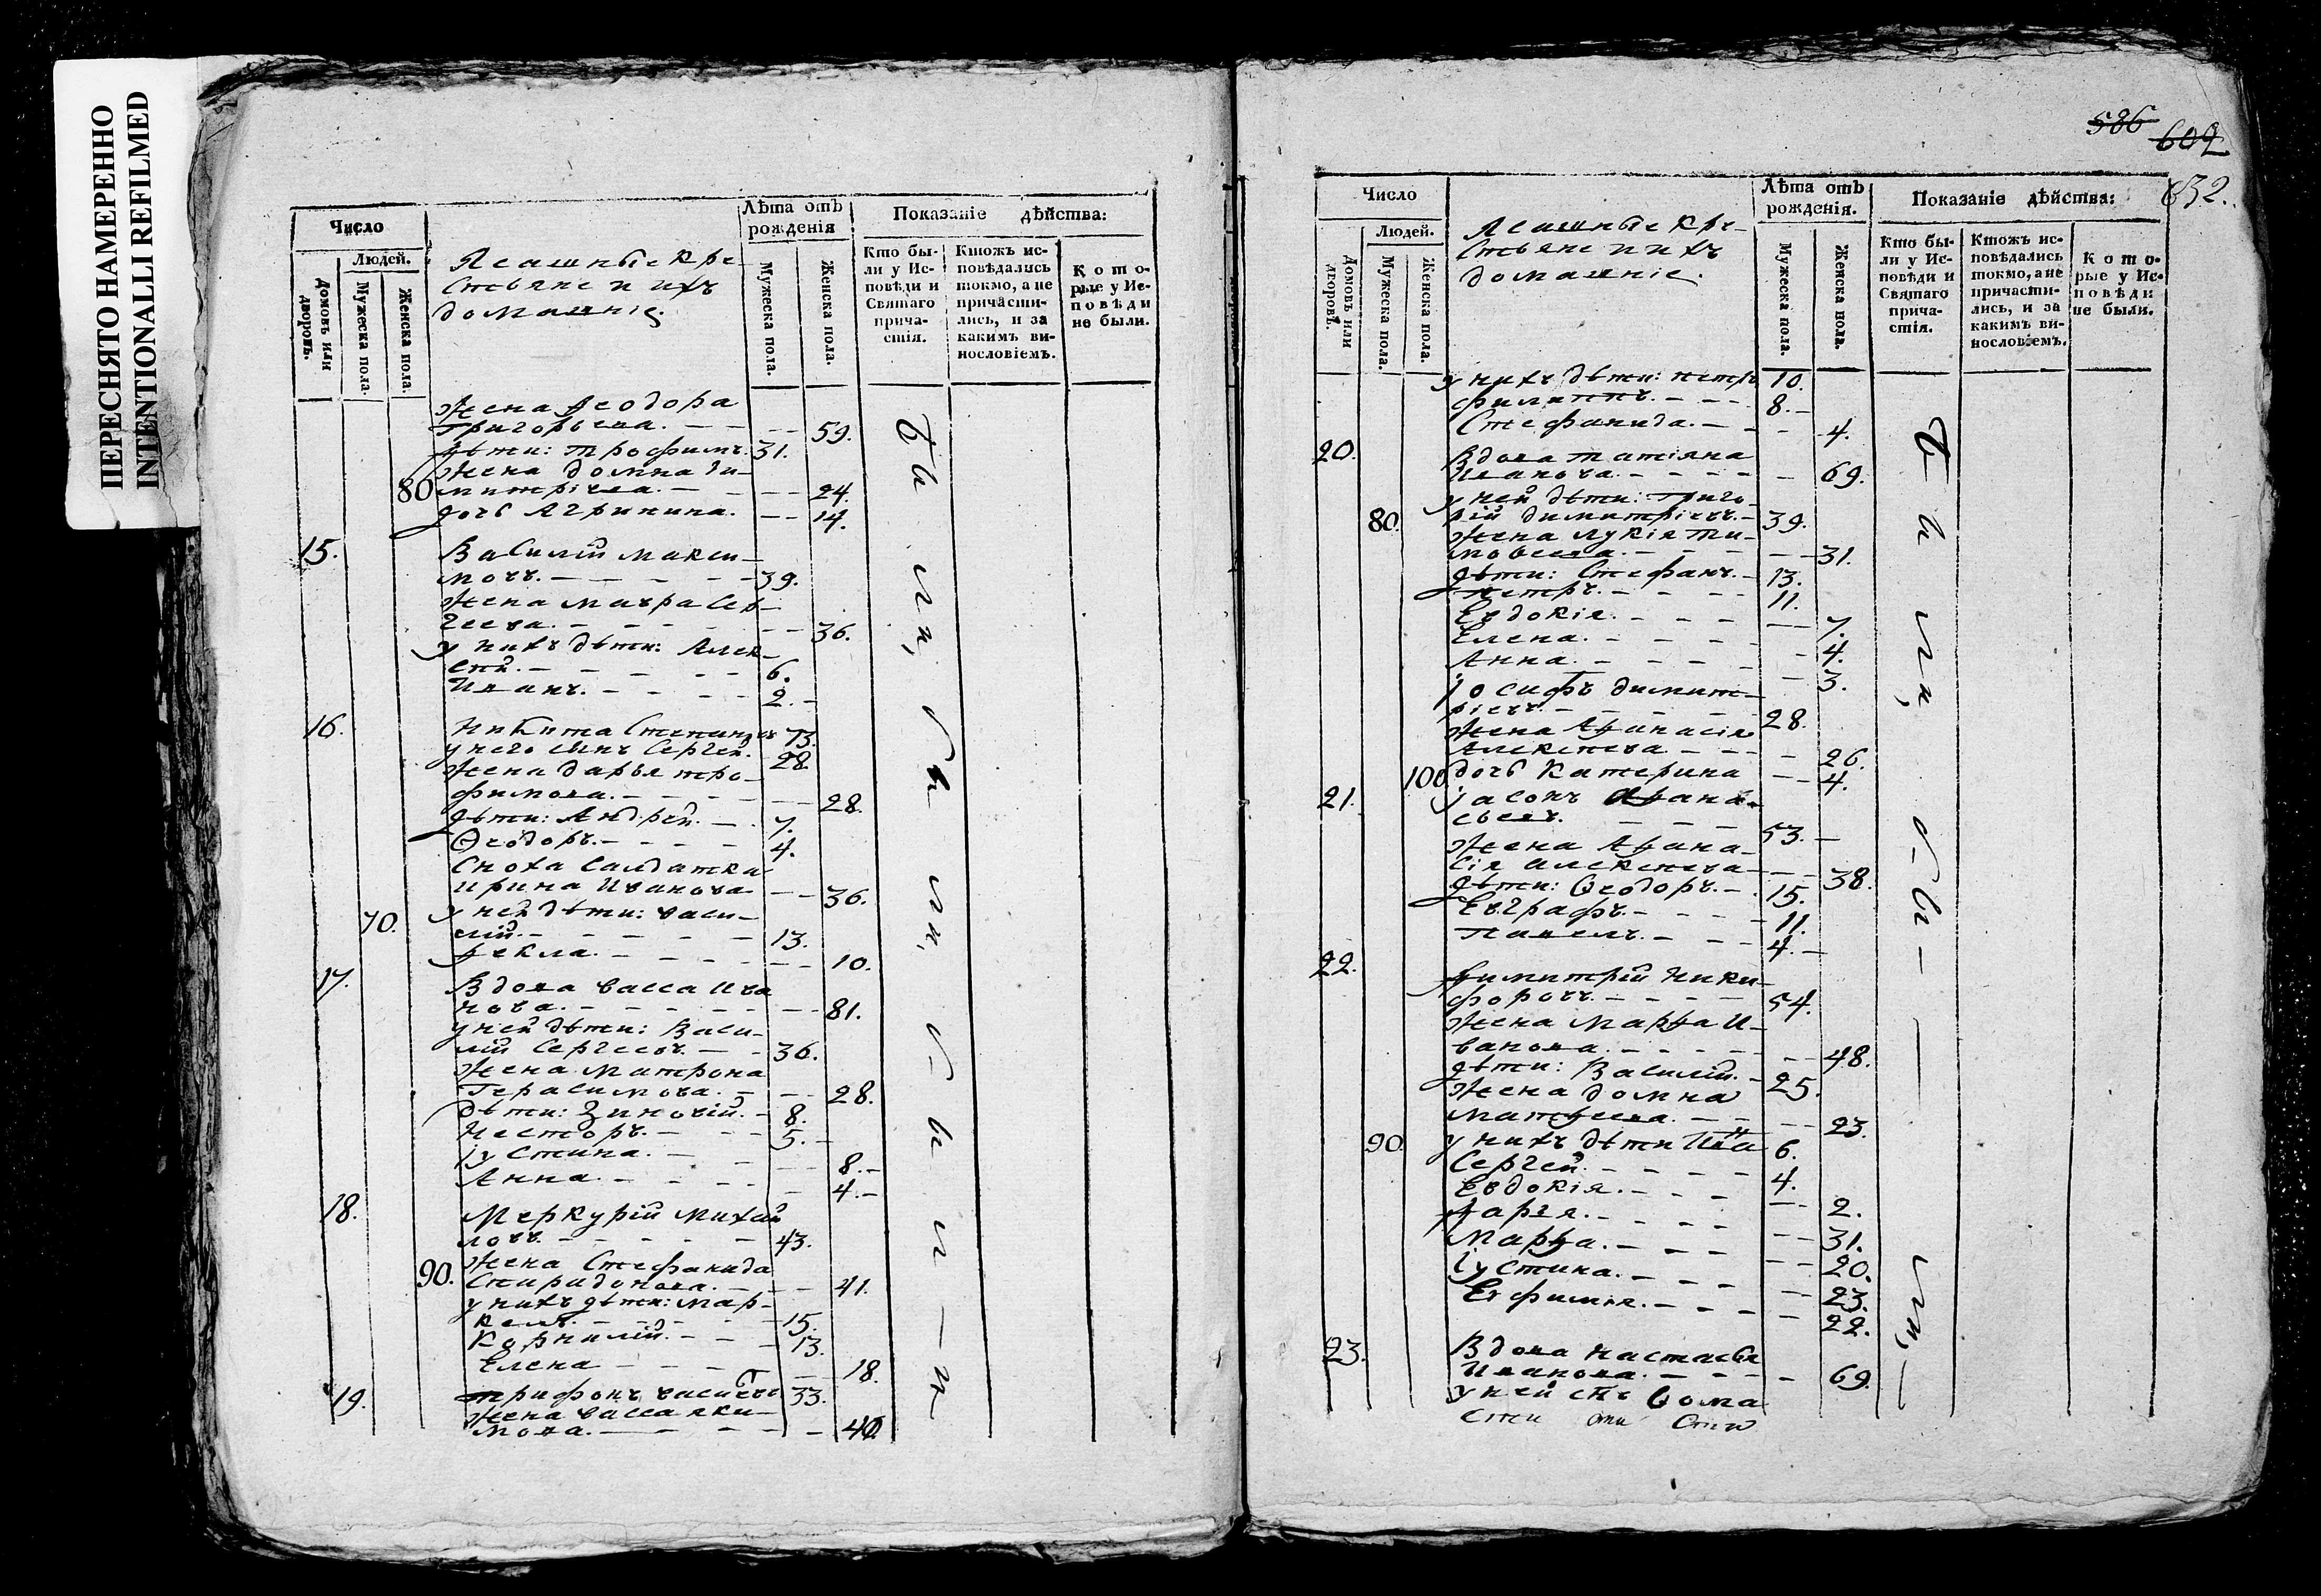 ПЕРЕСНЯТО НАМЕРЕННО
INTENTIONALLI REFILMED
Число
Людей.
Домовъ или дворовъ.
Мужеска пола.
Женска пола.
Ясашные кре-
стьяне и ихъ
домашніе.
Лѣта отъ рожденія
Мужеска пола.
Женска пола.
Показаніе дѣйства:
Кто бы-
ли у Ис-
повѣди и
Святаго
прича-
стія.
Ктожъ ис-
повѣдались
токмо, а не
причасти-
лись, и за
какимъ ви-
нословіемъ.
Кото-
рые у Ис-
повѣди
не были.
Жена Ѳеодора
Григорьева. 59.
дѣти: Трофимъ. 31.
Жена Домна Ди-
80. митріева. 24.
дочь Агрипина. 14.
15. Василій Макси-
мовъ. 39.
Жена Мавра Сер-
геева. 36.
у нихъ дѣти: Алек-
сѣй. 6.
Иванъ. 2.
16. Никита 73.
у него сынъ Сергей. 28
Жена Дарья Тро-
фимова. 28.
дѣти: Андрей. 7.
Ѳеодоръ. 4.
Сноха Салдатка
Ирина Иванова 36.
70. у ней дѣти: Васи-
лій. 13.
Ѳекла. 10.
17. Вдова Васса Ива
нова. 81.
у ней дѣти: Васи-
лій Сергеевъ. 36.
Жена Матрона
Герасимова. 28.
дѣти: Зиновій. 8.
Несторъ. 5.
Іустина. 8.
Анна. 4.
18. Меркурій Михай
ловъ. 43.
Жена Стефанида
90. Спиридонова. 41.
у нихъ дѣти: Мар-
келъ. 15.
Корнилій. 13.
Елена 18.
19. Трифонъ 33.
Жена Васса Яки-
мова. 40.
бы ли, бы ли, бы ли
586
602
632.
Число
Людей.
Домовъ или дворовъ.
Мужеска пола.
Женска пола.
Ясашные кре-
стьяне и ихъ
домашніе.
Лѣта отъ
рожденія.
Мужеска пола.
Женска пола.
Показаніе дѣйства:
Кто бы-
ли у Ис-
повѣди и
Святаго
прича-
стія.
Ктожъ ис-
повѣдались
токмо, а не
причасти-
лись, и за
какимъ ви-
нословіемъ.
Кото-
рые у Ис-
повѣди
не были.
у нихъ дѣти: Петръ 10.
Филиппъ. 8.
Стефанида. 4.
20. Вдова Татіяна
Иванова. 69.
у ней дѣти: Григо-
80. рій Димитріевъ. 39.
Жена Лукія Ти-
мовеева. 31.
дѣти: Стефанъ. 13.
Петръ. 11.
Евдокія. 7.
Елена. 4.
Анна. 3.
Іосифъ Димит-
ріевъ. 28.
Жена Аѳанасія
Алексѣева. 26.
100. дочь Катерина 4.
21. Іасонъ Аѳана-
сьевъ. 53.
Жена Аѳана-
сія Алексѣева 38.
дѣти: Ѳеодоръ. 15.
Евграфъ. 11.
Павелъ. 4.
22. Димитрій Ники-
форовъ. 54.
Жена Марѳа И-
ванова. 48.
дѣти: Василій. 25.
Жена Домна
Матѳеева. 23.
90. у нихъ дѣти Иванъ 6.
Сергей. 4.
Евдокія. 2.
Дарья. 31.
Марѳа. 20.
Іустина. 23.
Евфимія. 22.
23. Вдова Настасья
Иванова. 69.
у ней
бы ли, бы ли,